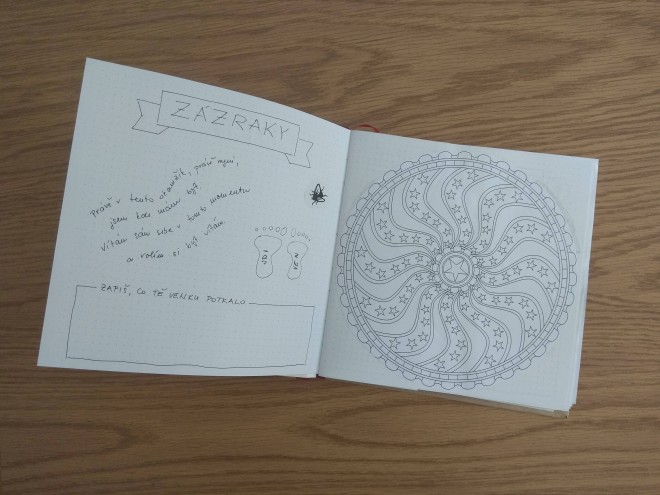 ZÁZRAKY
Právě v tento okamžik, právě nyní,
jsem kde mám být.
Vítám sám sebe v tomto momentu
a volím si být vítán.
JDI
VEN
ZAPIŠ, CO TĚ VENKU POTKALO